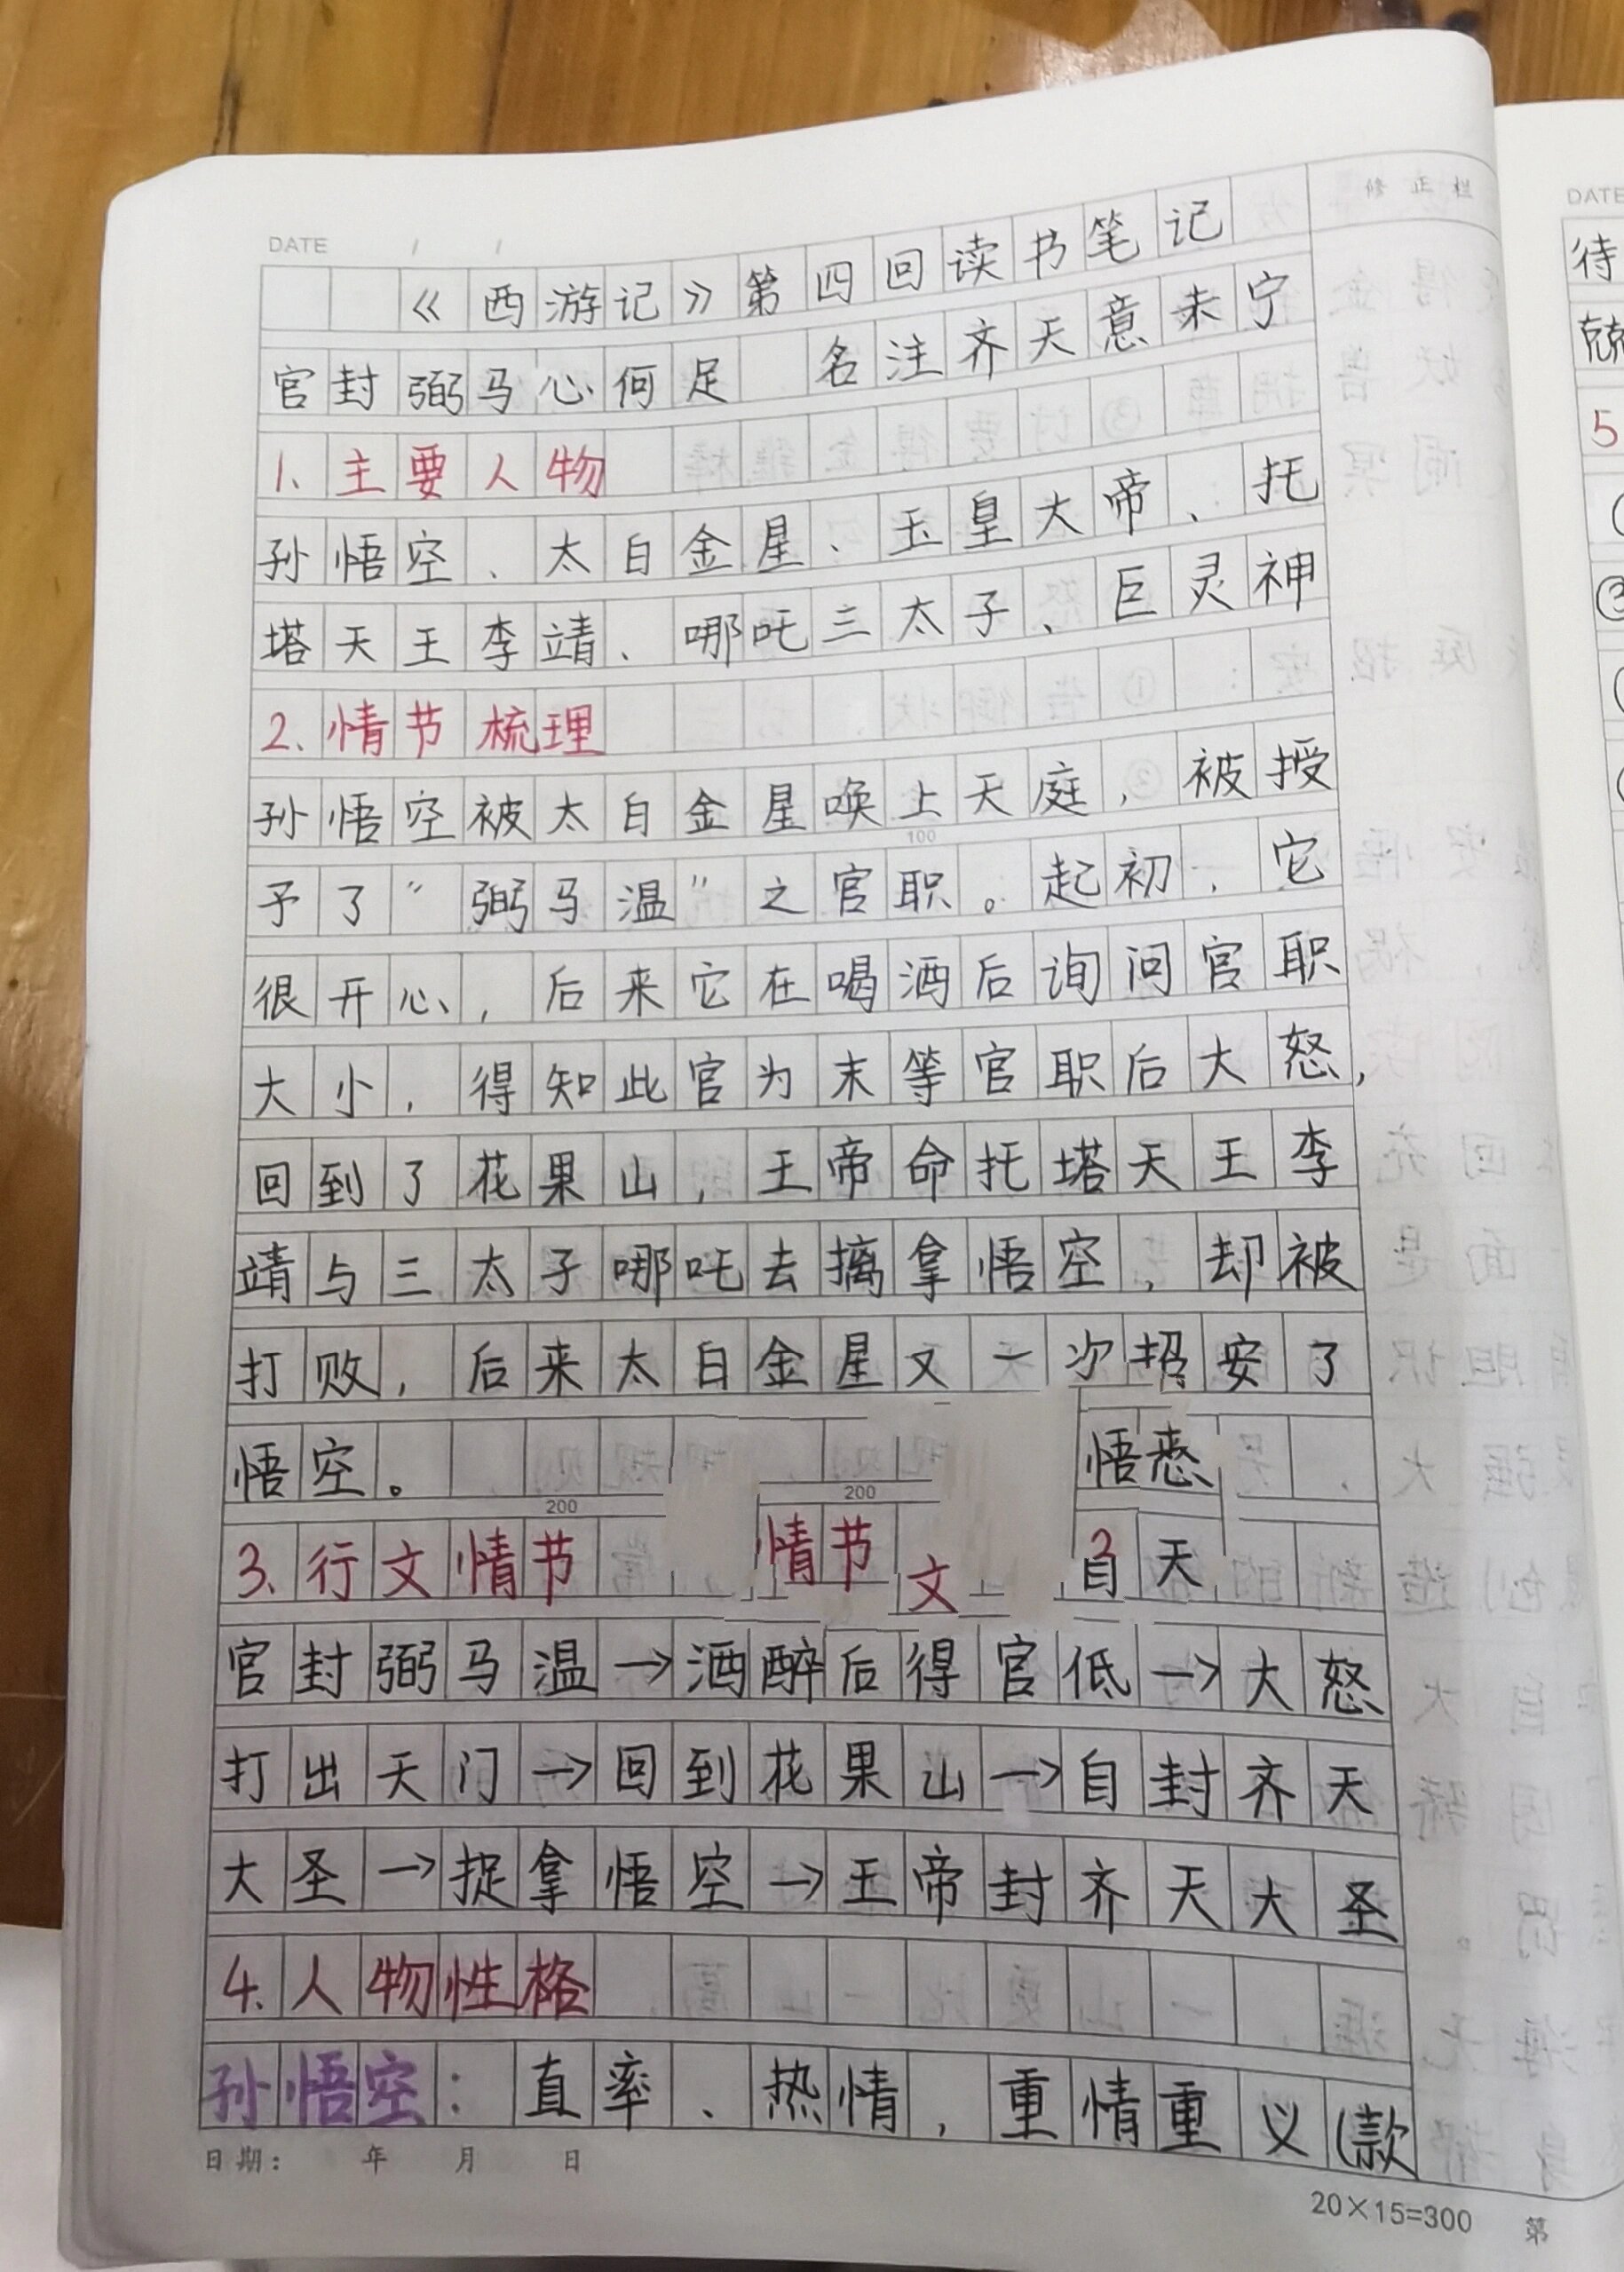 DATE / /
修正栏
《西游记》第四回读书笔记
官封弼马心何足 名注齐天意未宁
1、主要人物
孙悟空、太白金星、玉皇大帝、托
塔天王李靖、哪吒三太子、巨灵神
2、情节梳理
孙悟空被太白金星唤上天庭，被授
100
予了“弼马温”之官职。起初，它
很开心，后来它在喝酒后询问官职
大小，得知此官为末等官职后大怒，
回到了花果山，王帝命托塔天王李
靖与三太子哪吒去擒拿悟空，却被
打败，后来太白金星又一次招安了
悟空。
200 200
3、行文情节 情节 文 自天
官封弼马温→酒醉后得官低→大怒
打出天门→回到花果山→自封齐天
大圣→捉拿悟空→王帝封齐天大圣
4、人物性格
孙悟空：直率、热情，重情重义（款
日期： 年 月 日
20×15=300 第
DATE
待
兢
5
③